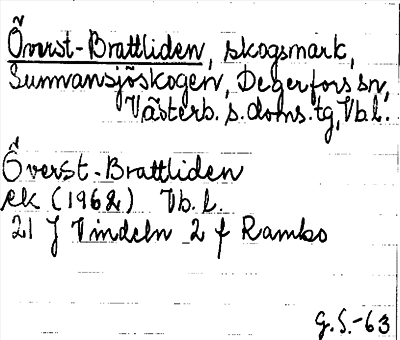 Överst-Brattliden, skogsmark,
Sunnansjöskogen, Degerfors sn,
Västerb. s. doms. tg, Vb. l.
Överst-Brattliden
ek (1962) Vb. l.
21 J Vindeln 2 f Rambo
G.S.-63